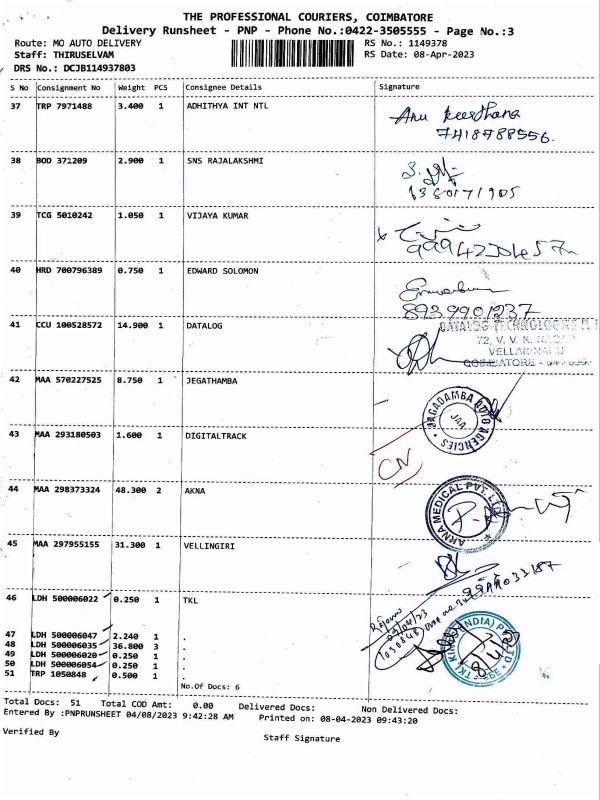 THE PROFESSIONAL COURIERS, COIMBATORE
Delivery Runsheet - PNP - Phone No.:0422-3505555 - Page No.:3
Route: MO AUTO DELIVERY RS No.: 1149378
Staff: THIRUSELVAM RS Date: 08-Apr-2023
DRS No.: DCJB114937803
S No Consignment No Weight PCS Consignee Details Signature
37 TRP 7971488 3.400 1 ADHITHYA INT NTL
Anu Keerthana
7418788556.
38 BOD 371209 2.900 1 SNS RAJALAKSHMI
39 TCG 5010242 1.050 1 VIJAYA KUMAR
40 HRD 700796389 0.750 1 EDWARD SOLOMON
8939901237
41 CCU 100528572 14.900 1 DATALOG
DATALOG TECHNOLOGIES
72, V. V. K.
COIMBATORE
42 MAA 570227525 8.750 1 JEGATHAMBA
JAGADAMBA AUTO AGENCIES
JAA
43 MAA 293180503 1.600 1 DIGITALTRACK
CN
44 MAA 298373324 48.300 2 AKNA
AKNA MEDICAL PVT. LTD
45 MAA 297955155 31.300 1 VELLINGIRI
46 LDH 500006022 0.250 1 TKL
47 LDH 500006047 2.240 1 .
48 LDH 500006035 36.800 3 .
49 LDH 500006020 0.250 1 .
50 LDH 500006054 0.250 1 .
51 TRP 1050848 0.500 1 .
1050848
(INDIA) P LTD
No.Of Docs: 6
Total Docs: 51 Total COD Amt: 0.00 Delivered Docs: Non Delivered Docs:
Entered By :PNPRUNSHEET 04/08/2023 9:42:28 AM Printed on: 08-04-2023 09:43:20
Verified By Staff Signature